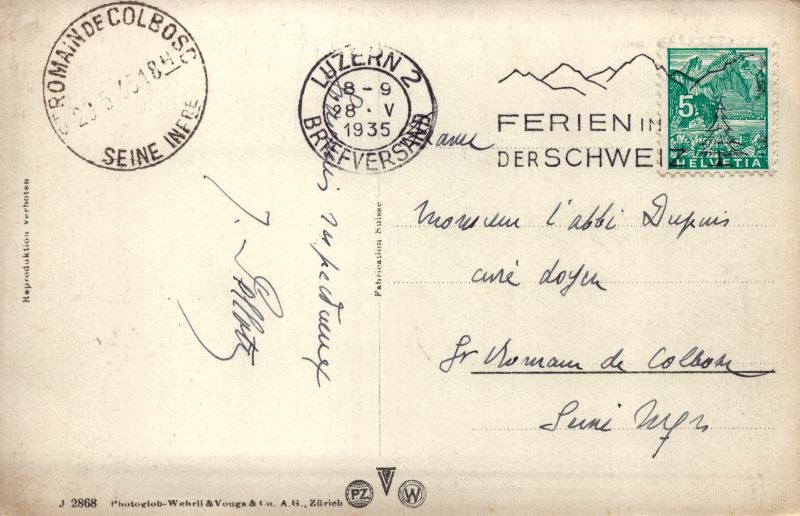 ST ROMAIN DE COLBOSC
SEINE INFRE
LUZERN 2
8-9
28. V
1935
BRIEFVERSAND
FERIEN IN
DER SCHWEIZ
5
HELVETIA
Monsieur l'abbé Dupuis
curé doyen
St Romain de Colbosc
Seine Infre
respectueux
Reproduktion verboten
Fabrication Suisse
J 2868 Photoglob-Wehrli & Vouga & Co. A.G., Zürich
PZ
W